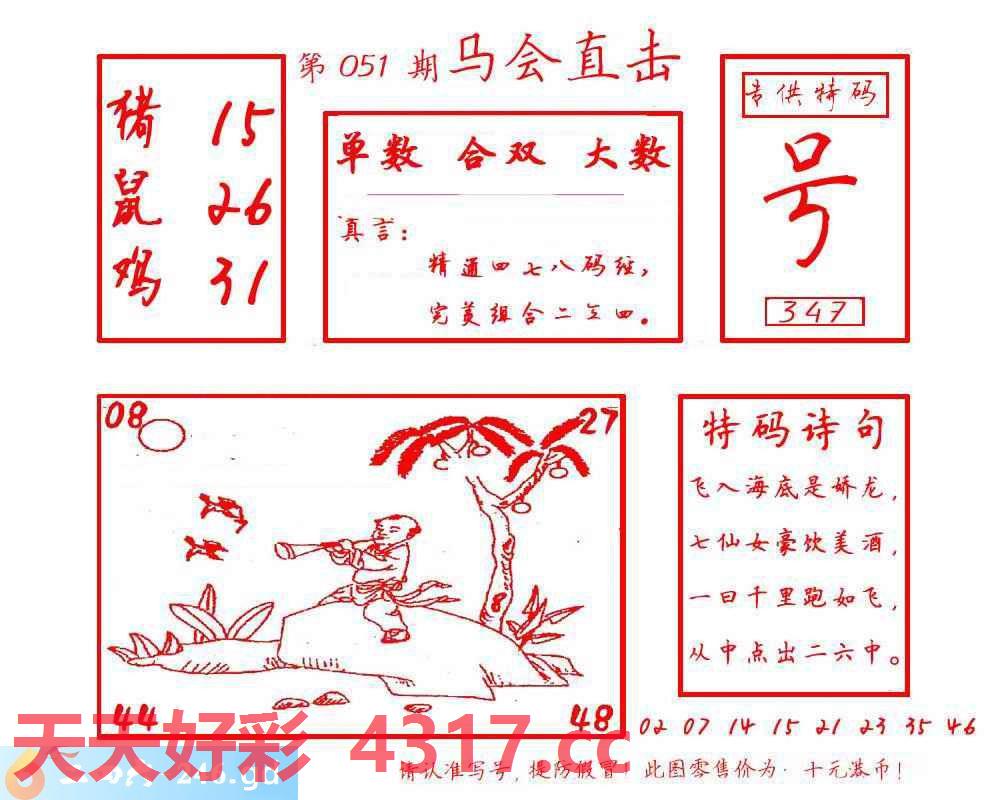 第 051 期 马会直击
猪 15
鼠 26
鸡 31
单数 合双 大数
真言：
精通四七八码经，
完美组合二五四。
专供特码
号
347
08
27
8
44
48
特码诗句
飞入海底是娇龙，
七仙女豪饮美酒，
一日千里跑如飞，
从中点出二六中。
02 07 14 15 21 23 35 46
天天好彩 4317.cc
246.gd
请认准写号，提防假冒！此图零售价为·十元港币！